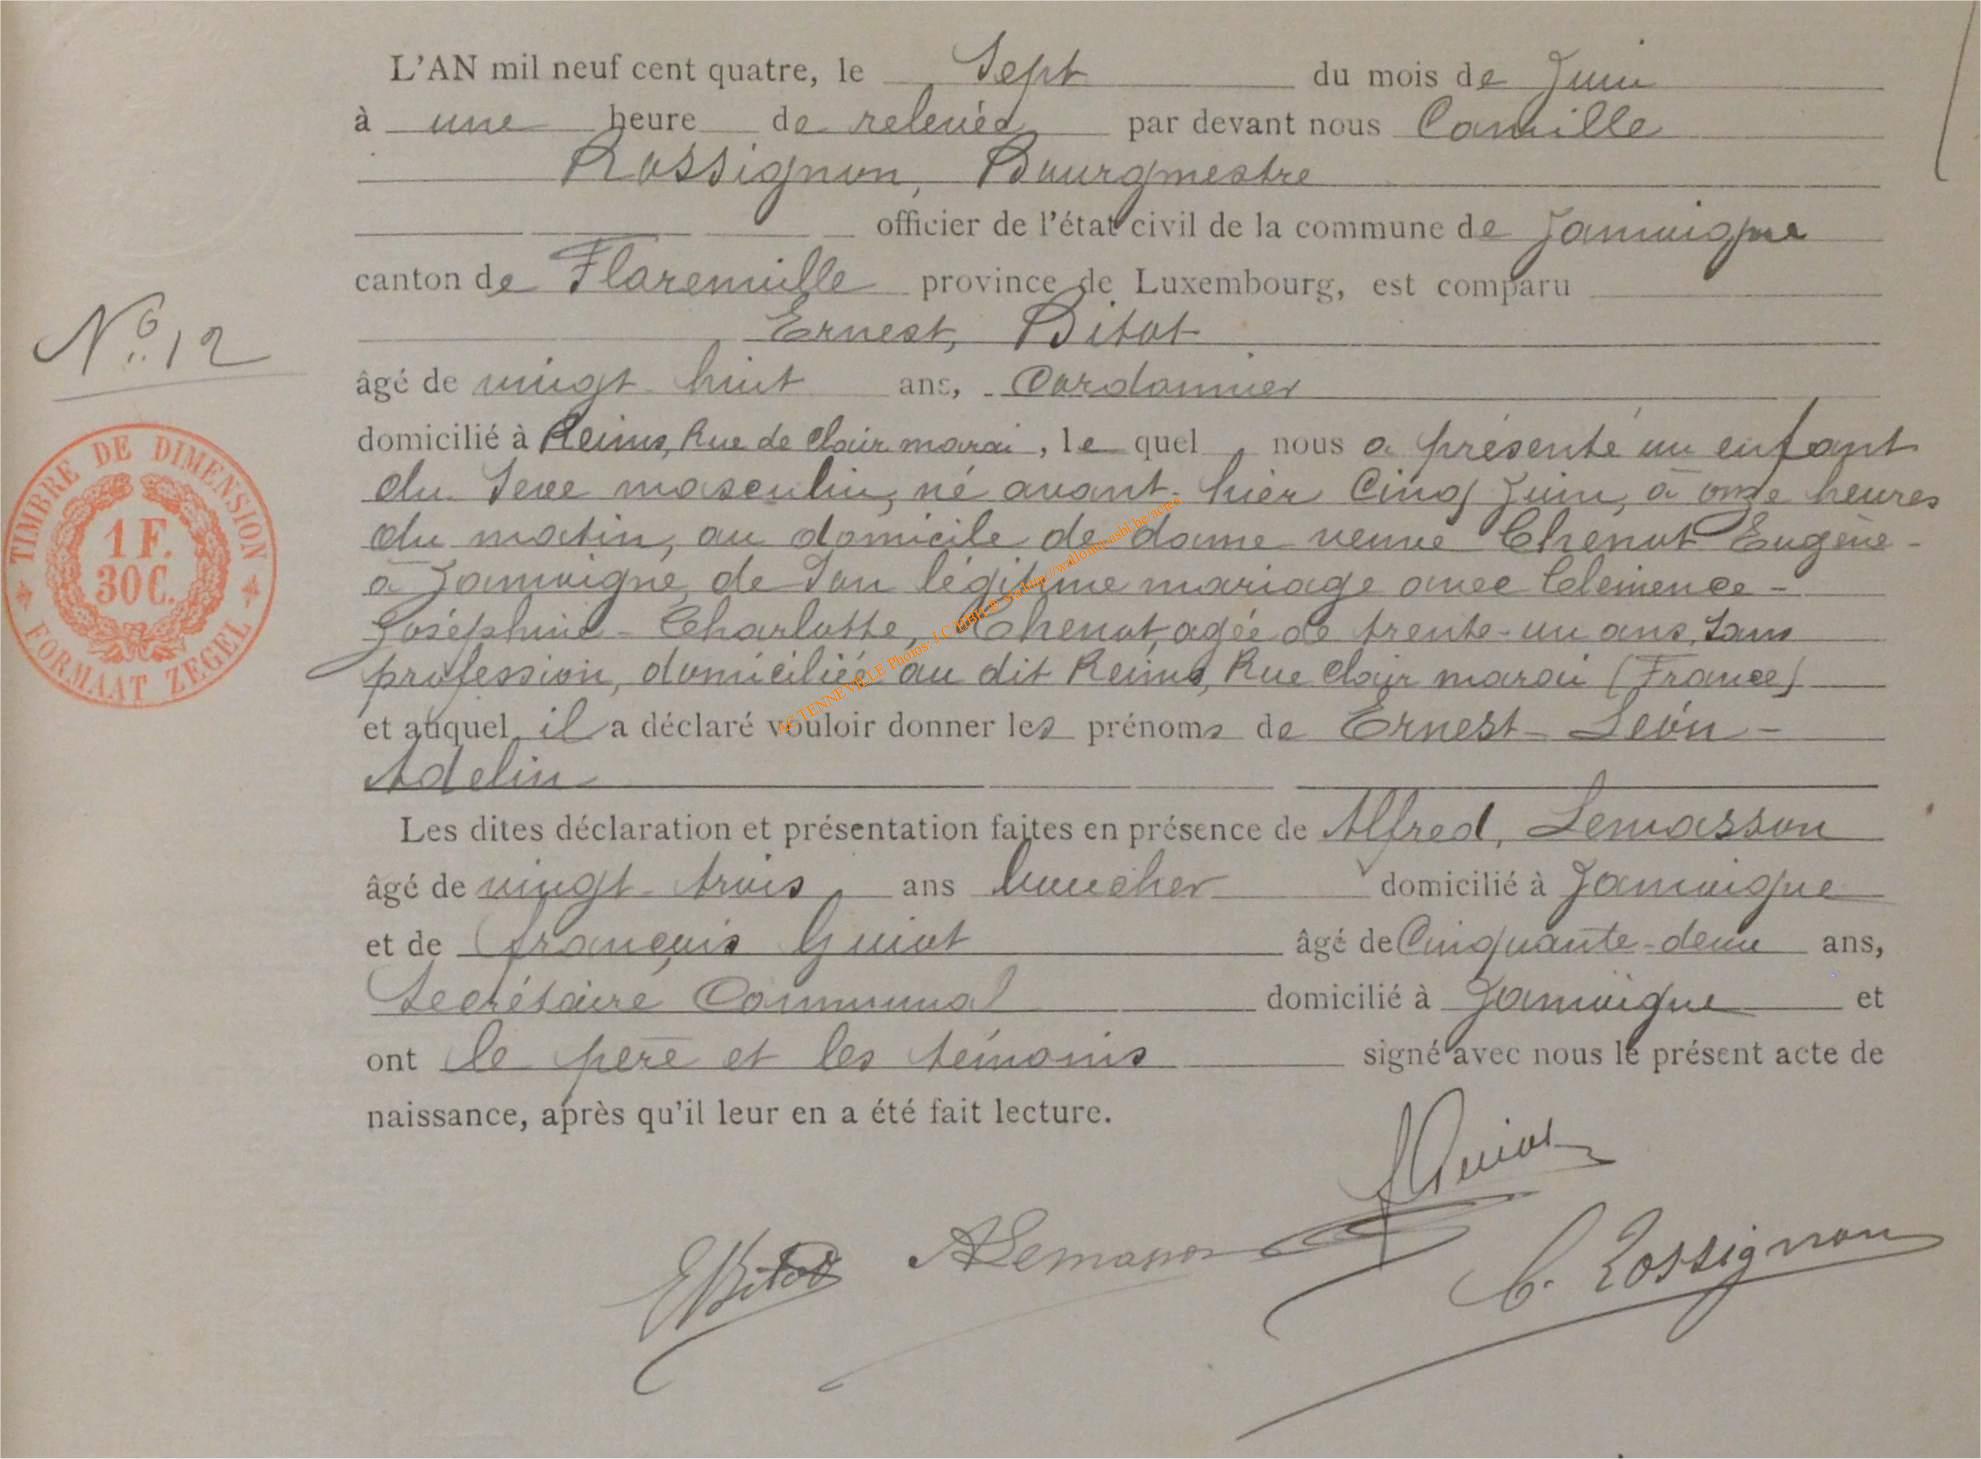 L'AN mil neuf cent quatre, le Sept du mois de Juin
à une heure de relevée par devant nous Camille
Rossignon, Bourgmestre
officier de l'état civil de la commune de Jamoigne
canton de Florenville province de Luxembourg, est comparu
Ernest, Bitot
N° 12
âgé de vingt huit ans, Cordonnier
domicilié à Reims, Rue de Clair marai, le quel nous a présenté un enfant
du Sexe masculin, né avant-hier Cinq Juin, à onze heures
du matin, au domicile de dame veuve Chenot Eugène-
à Jamoigne, de Son légitime mariage avec Clémence-
Joséphine-Charlotte, Chenot, agée de trente-un ans, Sans
profession, domiciliée au dit Reims, Rue Clair marai (France)
et auquel il a déclaré vouloir donner les prénoms de Ernest-Léon-
Adelin
Les dites déclaration et présentation faites en présence de Alfred, Lemasson
âgé de vingt-trois ans boucher domicilié à Jamoigne
et de françois Guiot âgé de Cinquante-deux ans,
Secrétaire Communal domicilié à Jamoigne et
ont le père et les témoins signé avec nous le présent acte de
naissance, après qu'il leur en a été fait lecture.
FGuiot
EBitot ALemasson C. Rossignon
TIMBRE DE DIMENSION
1 F.
30 C.
FORMAAT ZEGEL
TENNEVILLE Photos: